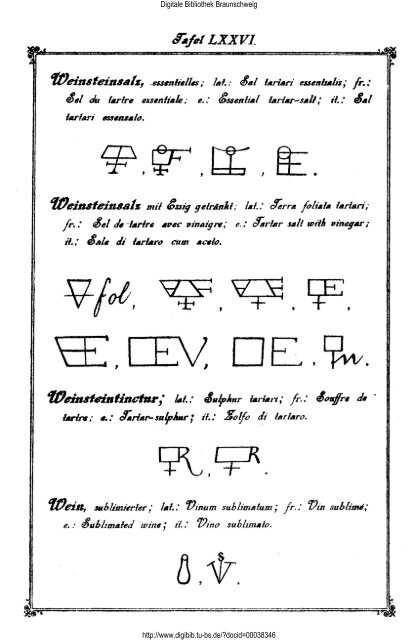 Digitale Bibliothek Braunschweig
Tafel LXXVI.
Weinsteinsalz, essentielles; lat.: Sal tartari essentialis; fr.:
Sel du tartre essentiale; e.: Essential tartar-salt; it.: Sal
tartari essenzato.
Weinsteinsalz mit Essig getränkt; lat.: Terra foliata tartari;
fr.: Sel de tartre avec vinaigre; e.: Tartar salt with vinegar;
it.: Sale di tartaro cum aceto.
fol.
Weinsteintinctur; lat.: Sulphur tartari; fr.: Souffre de
tartre; e.: Tartar-sulphur; it.: Zolfo di tartaro.
Wein, sublimierter; lat.: Vinum sublimatum; fr.: Vin sublimé;
e.: Sublimated wine; it.: Vino sublimato.
http://www.digibib.tu-bs.de/?docid=00038346